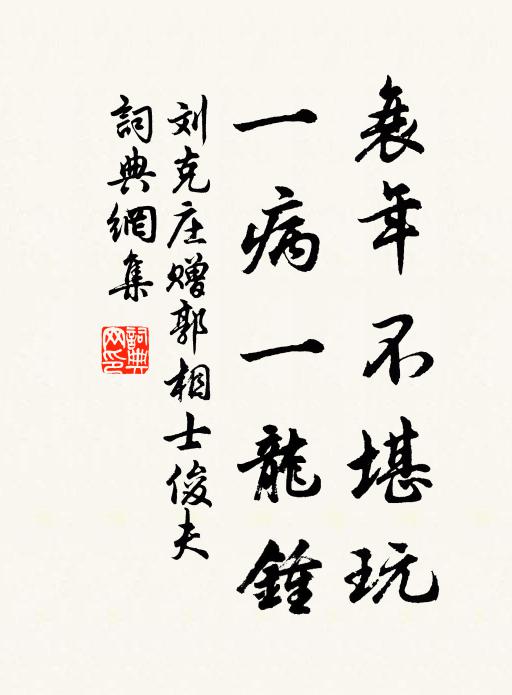 衰年不堪玩
一病一龍鍾
刘克庄赠郭相士俊夫
詞典網集
詞典网印